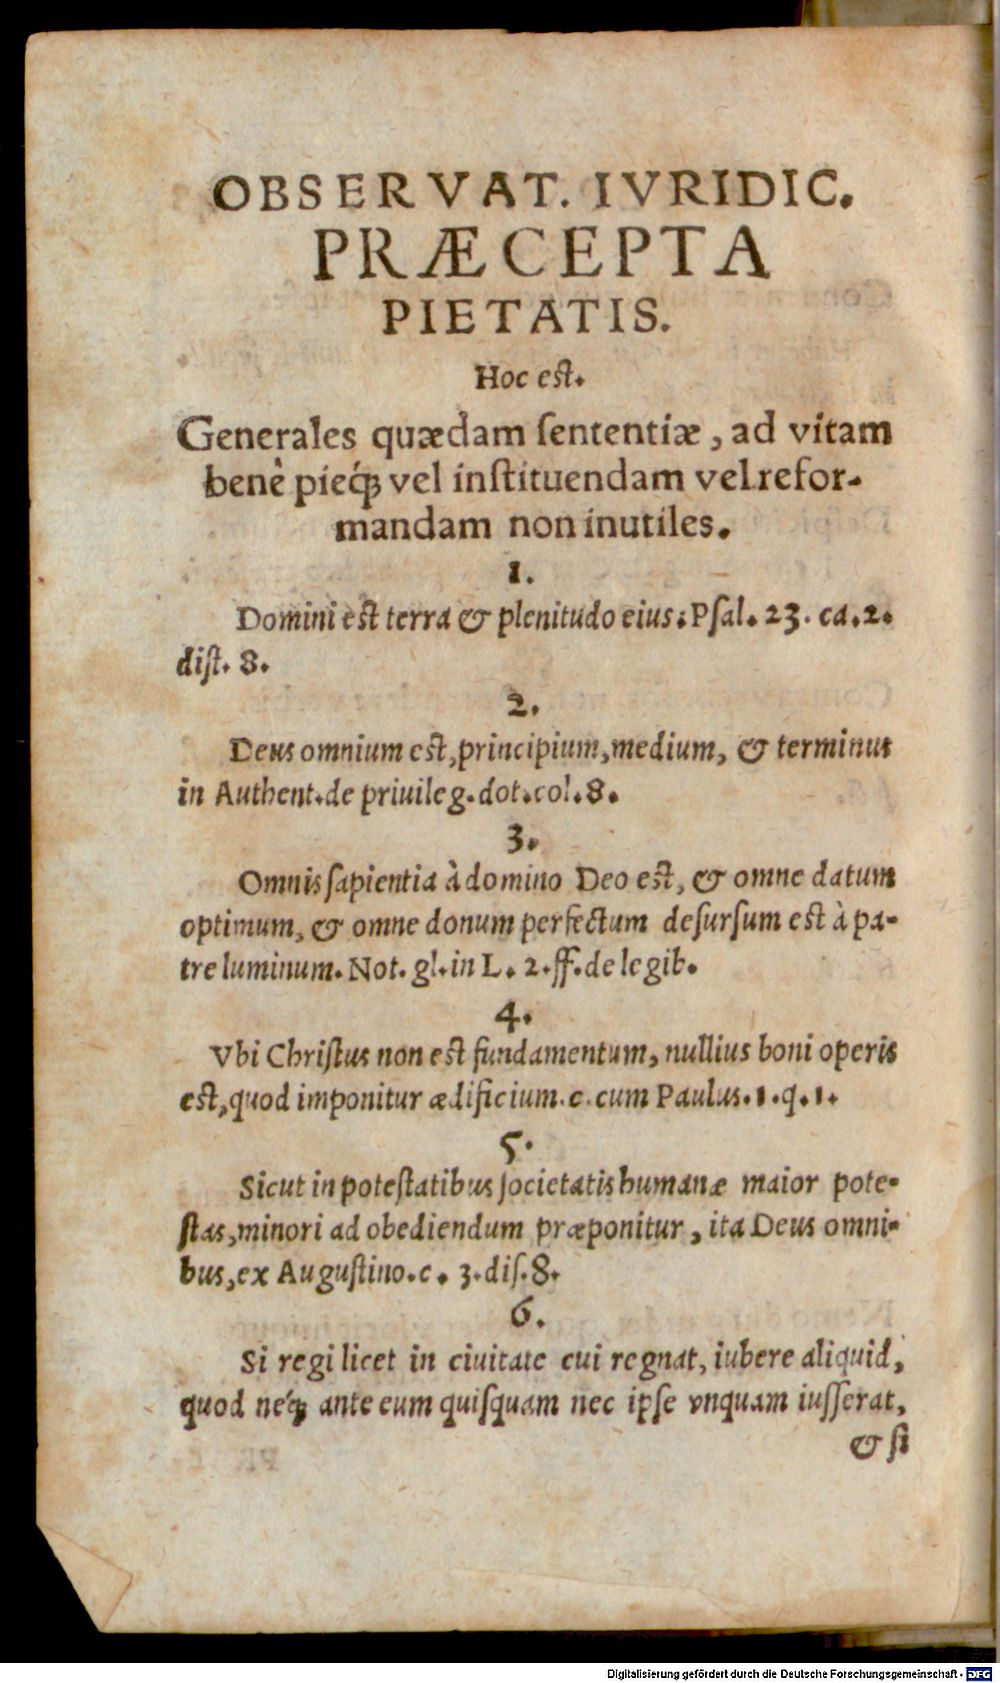 OBSERVAT. IVRIDIC.
PRÆCEPTA
PIETATIS.
Hoc est.
Generales quædam ſententiæ, ad vitam
benè pieq́ꝫ vel inſtituendam vel refor-
mandam non inutiles.
1.
Domini est terra & plenitudo eius: Pſal. 23. ca. 2.
diſt. 8.
2.
Deus omnium est, principium, medium, & terminus
in Authent. de priuileg. dot. col. 8.
3.
Omnis ſapientia à domino Deo est, & omne datum
optimum, & omne donum perfectum deſurſum est à pa-
tre luminum. Not. gl. in L. 2. ff. de legib.
4.
Vbi Chriſtus non est fundamentum, nullius boni operis
est, quod imponitur ædificium. c. cum Paulus. 1. q. 1.
5.
Sicut in poteſtatibus ſocietatis humanæ maior pote-
ſtas, minori ad obediendum præponitur, ita Deus omni-
bus, ex Auguſtino. c. 3. diſ. 8.
6.
Si regi licet in ciuitate cui regnat, iubere aliquid,
quod neq́ꝫ ante eum quiſquam nec ipſe vnquam iuſſerat,
& ſi
Digitalisierung gefördert durch die Deutsche Forschungsgemeinschaft - DFG